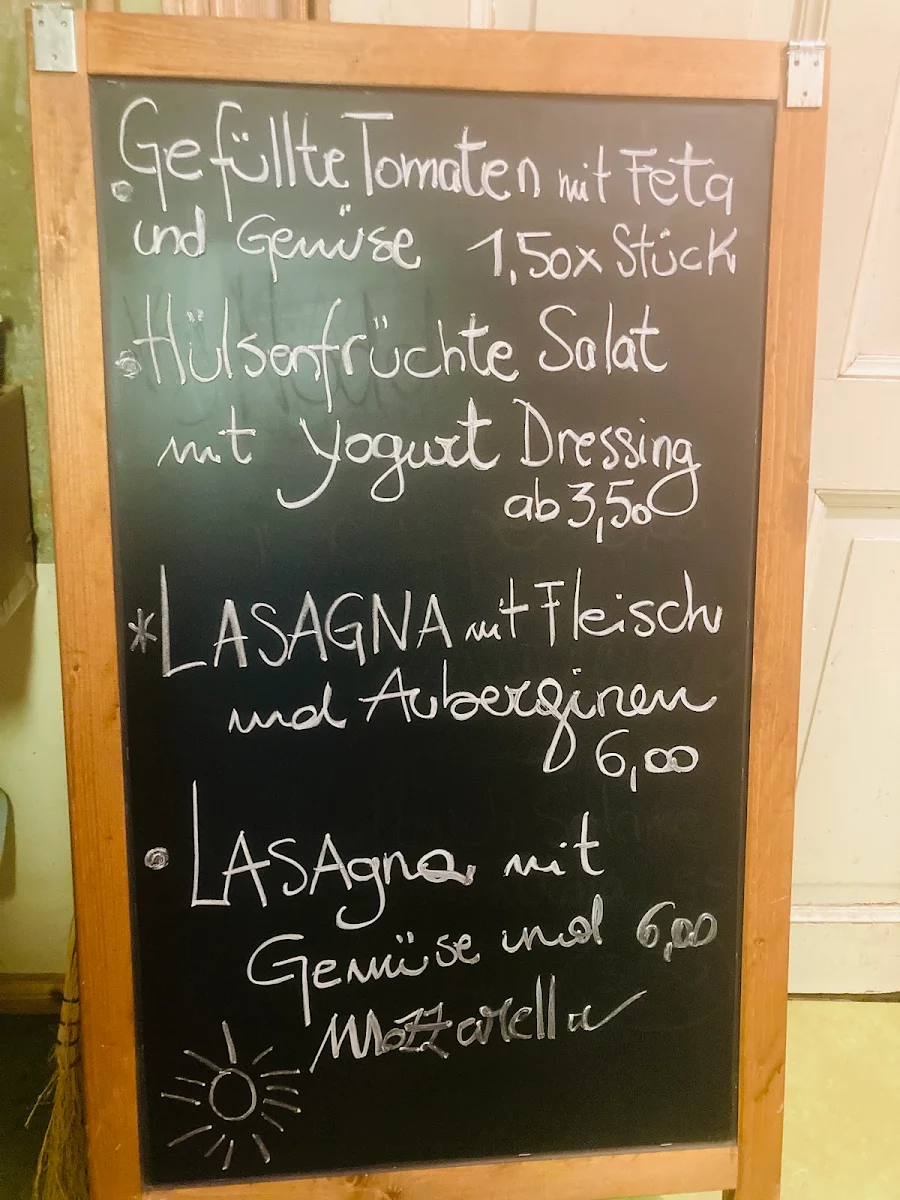 Gefüllte Tomaten mit Feta
und Gemüse 1,50 x Stück
Hülsenfrüchte Salat
mit Yogurt Dressing
ab 3,50
*LASAGNA mit Fleisch
und Auberginen
6,00
LASAgna mit
Gemüse und 6,00
Mozzarella